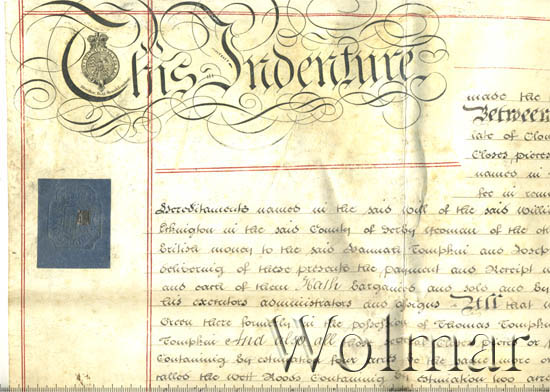 This Indenture
made the
Between
late of
Closes pieces
named in
fee in
Hereditaments named in the said will of the said Willi
in the said County of Derby Yeoman of the
British money to the said Hannah Tomphin and Joseph
delivering of these presents the payment and Receipt
and each of them Hath bargained and sold and by
his executors administrators and assigns All that
Green there formerly in the possession of Thomas Tomph
Tomphin And also all those
Containing by estimation four acres be the same more or
called the Well Roods Containing by estimation two acr
Wolmar